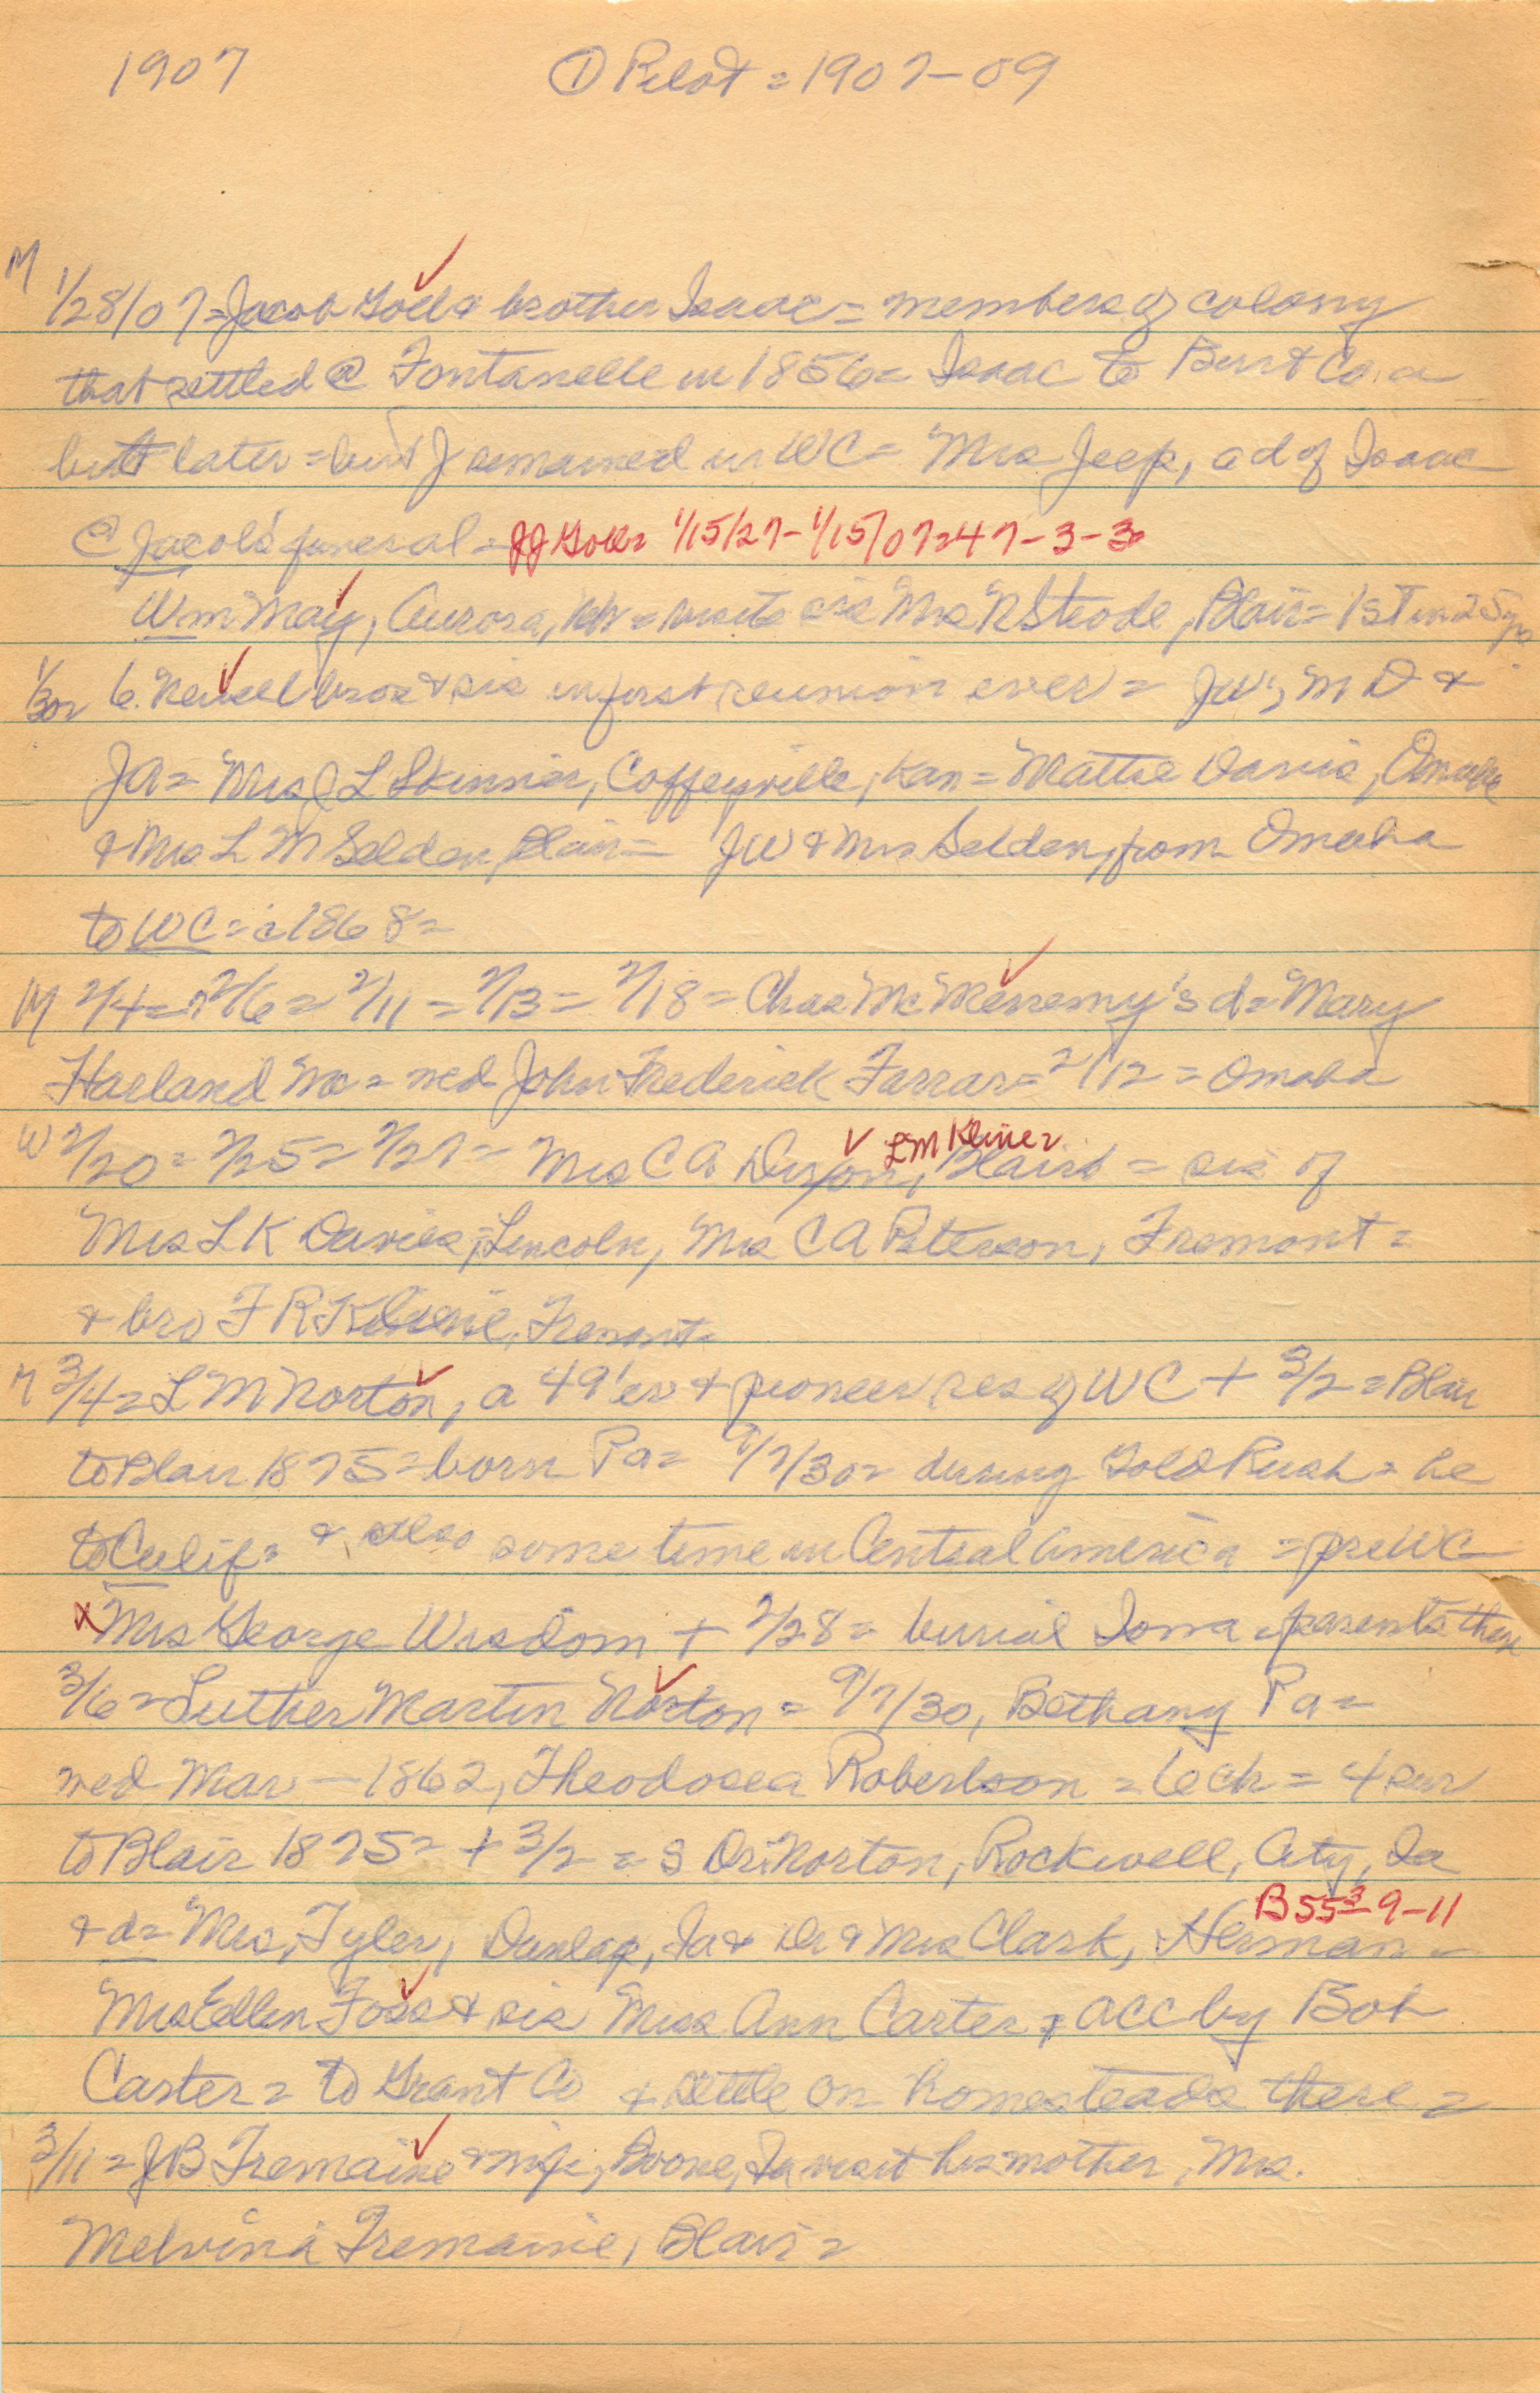 1907 ① Pilot = 1907-09
M 1/28/07 = Jacob Goll & brother Isaac = members of colony
that settled @ Fontanelle in 1856 = Isaac to Burt Co. a
bit later = but J remained in WC = Mrs Jeep, a d of Isaac
@ Jacob's funeral = JJ Goll = 1/15/27-1/15/07 = 47-3-3
Wm May, Aurora, = visits sis Mrs R Strode, Blair = 1st in 25 yrs
1/30 = 6 Newell bros & sis in first reunion ever = JW, MD &
JA = Mrs J L Skinner, Coffeyville, Kan = Mattie Davis, Omaha
& Mrs L M Selden, Blair = JW & Mrs Selden, from Omaha
to WC = c 1868 =
M 2/4 = 2/6 = 2/11 = 2/13 = 2/18 = Chas McMenemy's d = Mary
Harland Mc = wed John Frederick Farrar = 2/12 = Omaha
W 2/20 = 2/25 = 2/27 = Mrs C A Dixon, Blair = sis of
L M Kline =
Mrs L K Davies, Lincoln, Mrs C A Peterson, Fremont =
& bro F R Kline, Fremont =
M 3/4 = L M Norton, a 49'er & pioneer res of WC + 3/2 = Blair
to Blair 1875 = born Pa = 9/7/30 = during Gold Rush = he
to Calif = & also some time in Central America = pre WC
x Mrs George Wisdom + 2/28 = burial Iowa = parents there
3/6 = Luther Martin Norton = 9/7/30, Bethany Pa =
wed Mar — 1862, Theodosea Robertson = 6 ch = 4 sur
to Blair 1875 = + 3/2 = s Dr. Norton, Rockwell, City, Ia
& d = Mrs, Tyler, Dunlap, Ia & Dr & Mrs Clark, Herman =
B 55 3 9-11
Mrs Ellen Foss & sis Miss Ann Carter & acc by Bob
Carter = to Grant Co & settle on homesteads there =
3/11 = JB Tremaine & wife, Boone, Ia visit his mother, Mrs.
Melvina Tremaine, Blair =